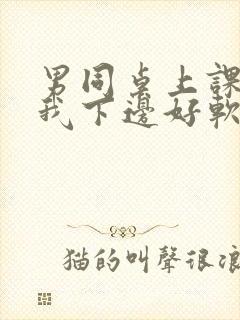 男同桌上課
我下邊好軟
猫的叫聲很浪